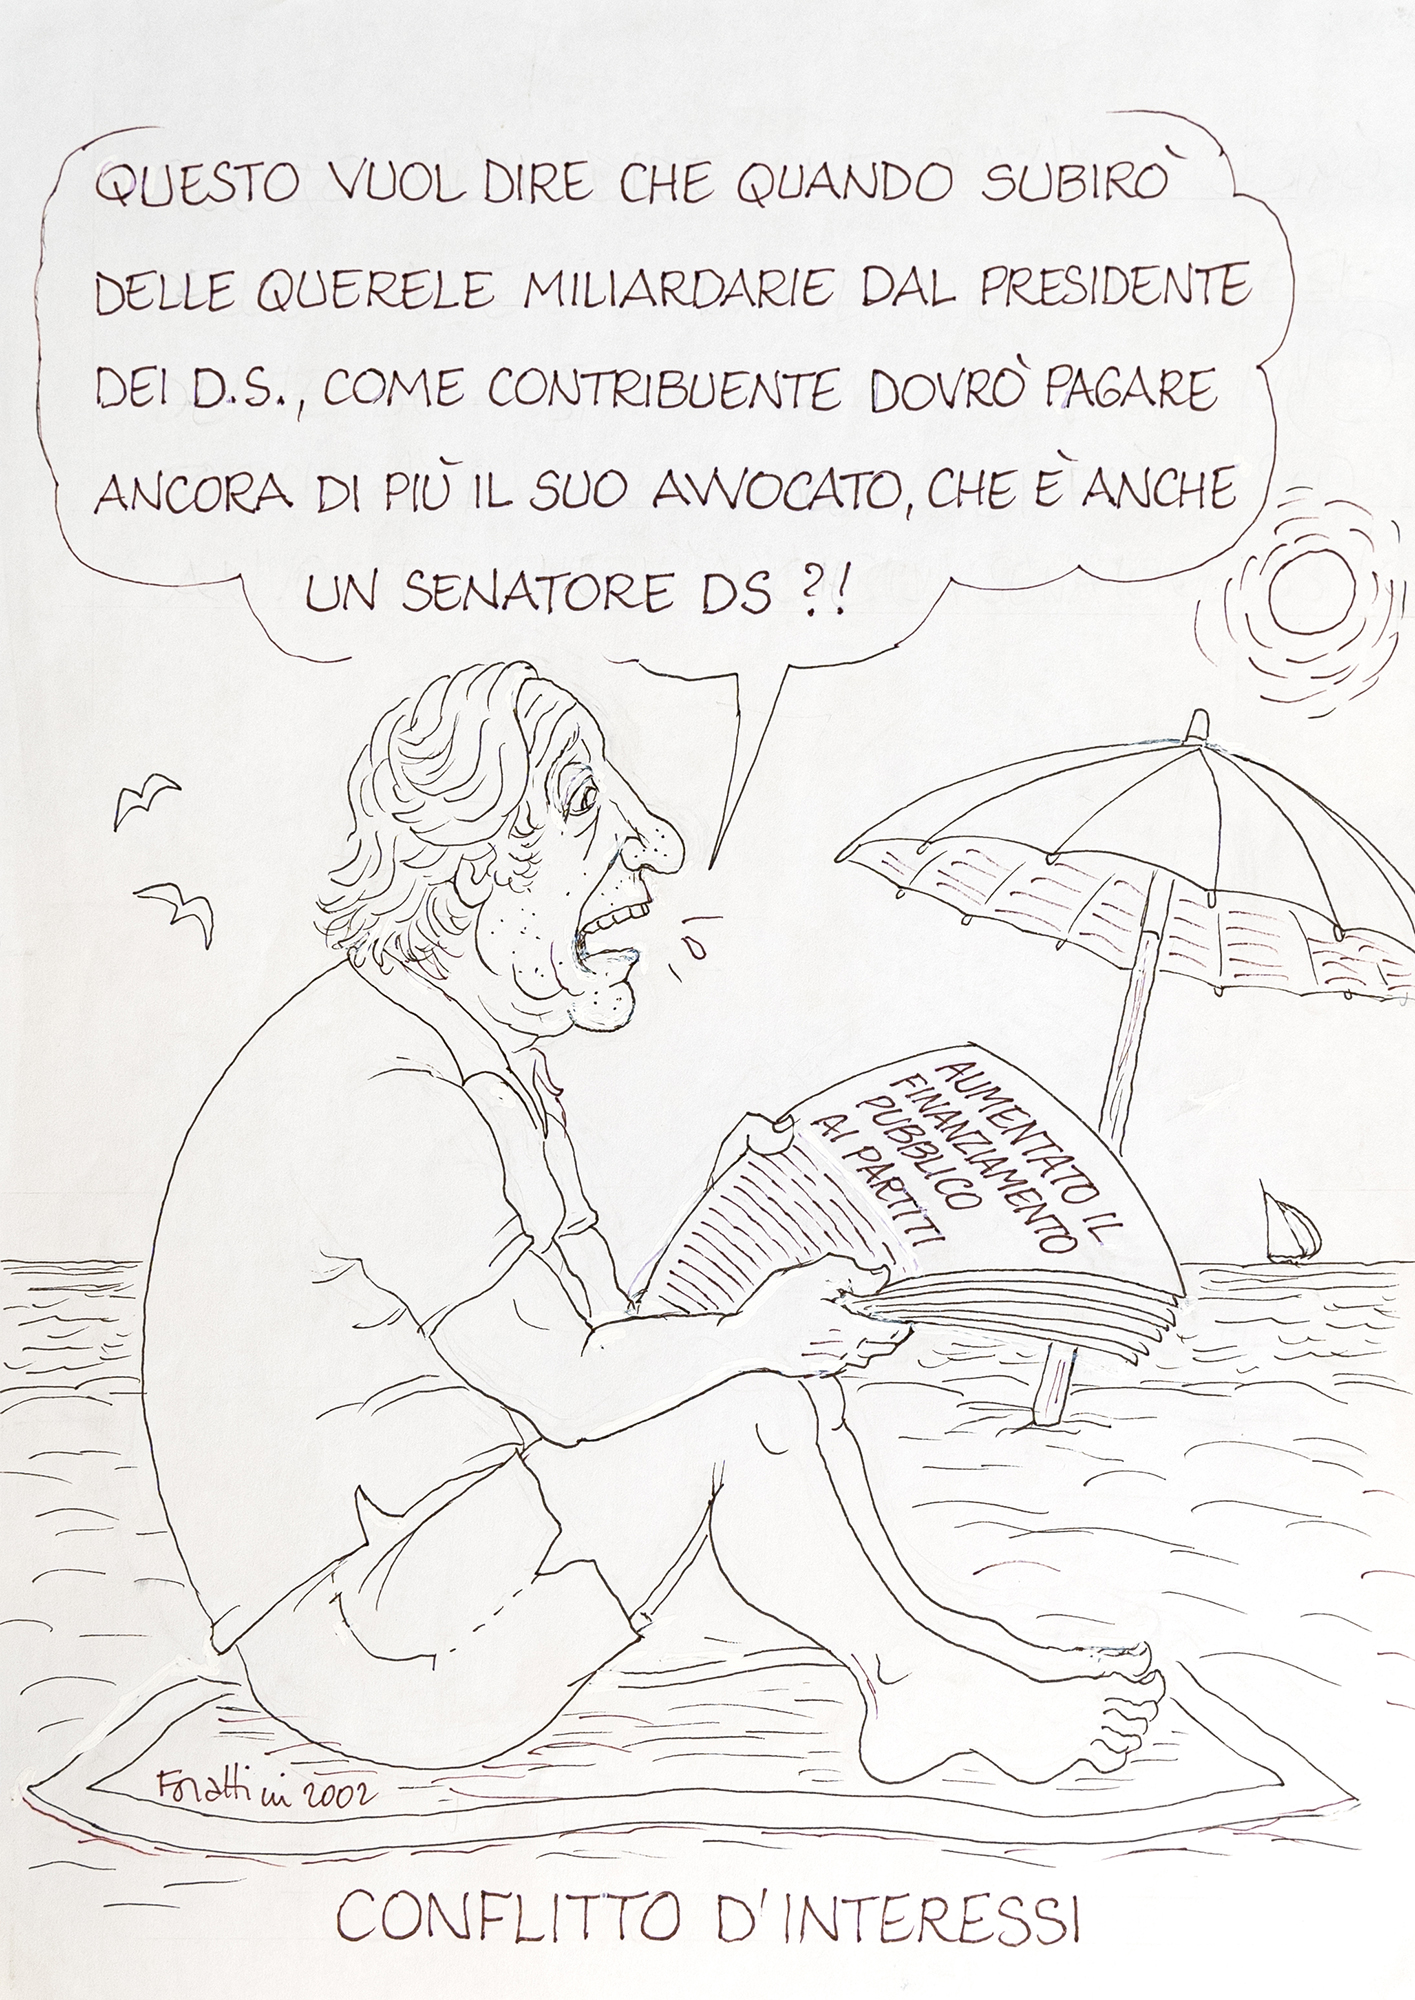 QUESTO VUOL DIRE CHE QUANDO SUBIRÒ
DELLE QUERELE MILIARDARIE DAL PRESIDENTE
DEI D.S., COME CONTRIBUENTE DOVRÒ PAGARE
ANCORA DI PIÙ IL SUO AVVOCATO, CHE È ANCHE
UN SENATORE DS ?!
AUMENTATO IL
FINANZIAMENTO
PUBBLICO
AI PARTITI
Forattini 2002
CONFLITTO D'INTERESSI